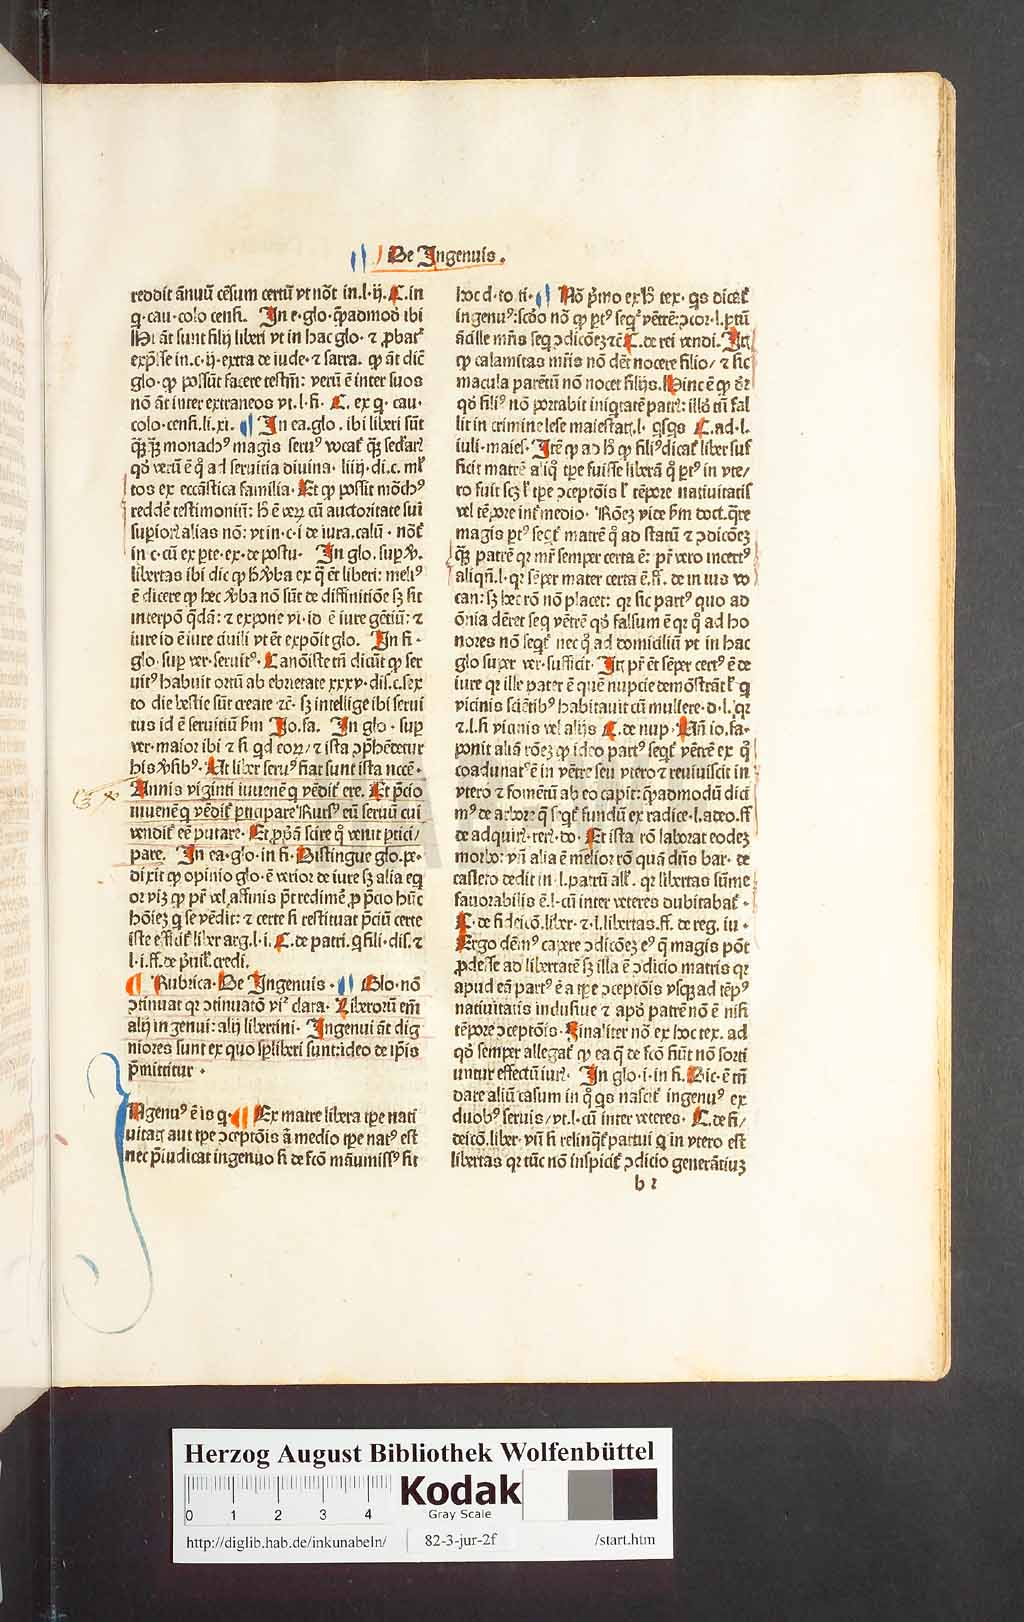 De Ingenuis.
reddit ānuū cēsum certū vt nōt in.l.ij.C.in
q.cau.colo censi. In e.glo.q̄padmodū ibi
Hi āt sunt filij liberi vt in hac glo. ⁊ ꝓbat᷑
exp̄sse in.c.ij.extra de iude. ⁊ sarra. ꝙ āt dic̄
glo. ꝙ possūt facere testm̄: verū ē inter suos
nō āt inter extraneos vt.l.fi. C. ex q. cau.
colo.censi.li.xi. In ea.glo. ibi liberi sūt
q̄ꝫ monachꝰ magis seruꝰ vocat᷑
qꝺ verū ē ad seruitia diuina. liiij. di.c.
tos ex eccāstica familia. Et ꝙ possit mōchꝰ
redde testimoniū: ē verꝝ cū auctoritate sui
superioꝝ alias nō: vt in.c.i de iura.calū. nōt᷑
in c. cū ex ꝑte.ex.de postu. In glo. suꝑ
libertas ibi dic ꝙ ex q̄ ēt liberi: meliꝰ
ē dicere ꝙ hec v̄ba nō sūt de diffinitiōe sꝫ sit
interpō q̄dā: ⁊ expone vi.id ē iure gētiū: ⁊
iure id ē iure ciuili vt ēt expōit glo. In fi.
glo. suꝑ ver. seruitꝰ. Canōiste tn̄ dicūt ꝙ ser
uitꝰ habuit ortū ab ebrietate xxxv.dis.c.sex
to die bestie sūt create ⁊c̄. sꝫ intellige ibi serui
tus id ē seruitiū fm Jo.fa. In glo. suꝑ
ver. maior ibi ⁊ si qd eoꝝ ⁊ ista ꝯp̄hēdetur
his v̄sibꝰ. Ut liber seruꝰ fiat sunt ista nccē.
Annis viginti iuuenē q vēdit᷑ ere. Et p̄cio
iuuenē q vēdit᷑ ꝑticipare Rursꝰ eū seruū cui
vendit᷑ eē putare. Et scire q̄ venit ꝑtici/
pare. In ea.glo.in fi. Distingue glo.pe.
dixit ꝙ opinio glo. ē verior de iure sꝫ alia eq̄
or viꝫ ꝙ pr̄ vel affinis p̄t redimē ꝓ p̄cio hūc
hōieꝫ q se vēdit: ⁊ certe si restituat p̄ciū certe
iste efficit᷑ liber arg.l.i. C. de patri. q fili. dis. ⁊
l.i.ff.de p̄uil.credi.
Rubrica. De Ingenuis. Glo. nō
ꝯtinuat qꝛ ꝯtinuatō vi᷑ clara. Liberorū em̄
alij ingenui: alij libertini. Ingenui āt dig
niores sunt ex quo sp̄ liberi sunt: ideo de ip̄is
p̄mittitur.
INgenuꝰ ē is q. Ex matre libera tꝑe nati
uitaꝭ aut tꝑe ꝯceptōis ā medio tꝑe natꝰ est
nec p̄iudicat ingenuo si de fcō māumissꝰ sit
hoc d.to ti. Nō p̄mo ex tex. qs dicat᷑
ingenuꝰ: scdo nō ꝙ ꝑtꝰ seq᷑ vētrē: ꝯcor.l.ꝑtū
ācille mr̄is seq ꝯdicōeꝫ ⁊c̄ C. de rei vendi. Itē
ꝙ calamitas mr̄is nō dēt nocere filio/ ⁊ sic
macula parētū nō nocet filijs. Hinc ē ꝙ
qꝺ filiꝰ nō portabit iniqtatē patꝝ: illd tn̄ fal
lit in crimine lese maiestaꝭ.l. qsqs C. ad.l.
iuli.maies. Itē ꝙ ad ꝙ filiꝰ dicat᷑ liber suf
ficit matrē aliq tꝑe fuisse liberā q ꝑtꝰ in vte/
ro fuit scꝫ tꝑe ꝯceptōis tēpore natiuitatis
vel tēpore int᷑medio. Rōeꝫ vide fm doct. q̄re
magis ꝑtꝰ seqt᷑ matrē q̄ ad statū ⁊ ꝯdicōeꝫ
q̄ꝫ patrē qꝛ mr̄ semper certa ē: pr̄ vero incertꝰ
aliqn̄.l. qꝛ sēper mater certa ē.ff. de in ius vo
can: sꝫ hec rō nō placet: qꝛ sic partꝰ quo ad
ōnia dēret seq vētrē qꝺ falsum ē qꝛ q̄ ad ho
nores nō seqt᷑ nec q̄ ad domiciliū vt in hac
glo super ver. sufficit. Itē pr̄ ēt sēper certꝰ ē de
iure qꝛ ille pater ē quē nupcie demōstrāt q̄
vicinis sciētibꝰ habitauit cū muliere. d.l. qꝛ
⁊ l.si vicinis vel alijs C. de nup. Un̄ io.fa.
ponit aliā rōeꝫ ꝙ ideo partꝰ seqt᷑ vētrē ex q̄
coadunatꝰ ē in vētre seu vtero ⁊ reuiuiscit in
vtero ⁊ fomētū ab eo capit: q̄padmodū dici
mꝰ de arbore q̄ seqt᷑ fundū ex radice.l.adeo.ff
de adquir.rer.do. Et ista rō laborat eodeꝫ
morbo: vn̄ alia ē melior rō quā dn̄s bar. de
castero dedit in.l.patrū qꝛ libertas sūme
fauorabilis ē.l. cū inter veteres dubitabat᷑.
C. de fideicō.liber. ⁊.l.libertas.ff. de reg. iu.
Ergo dēmꝰ capere ꝯdicōeꝫ eꝰ q̄ magis pōt
ꝓdesse ad libertatē sꝫ illa ē ꝯdicio matris qꝛ
apud eā partꝰ ē a tꝑe ꝯceptōis vsqꝫ ad tēpꝰ
natiuitatis inclusiue ⁊ apd patrē nō ē nisi
tēpore ꝯceptōis. Finaliter nō ex hoc tex. ad
qꝺ semper allegat᷑ ꝙ ea q̄ de fcō fiūt nō sorti
untur effectū iuꝝ. In glo.i.in fi. Dic. ē tn̄
dare aliū casum in q̄ qs nascit᷑ ingenuꝰ ex
duobꝰ seruis/ vt.l. cū inter veteres. C. de fi/
deicō.liber. vn̄ si relinqt᷑ partui q̄ in vtero est
libertas qꝛ tūc nō inspicit᷑ ꝯdicio generātiuꝫ
b 2
Herzog August Bibliothek Wolfenbüttel
0 1 2 3 4
Kodak
Gray Scale
http://diglib.hab.de/inkunabeln/ 82-3-jur-2f /start.htm